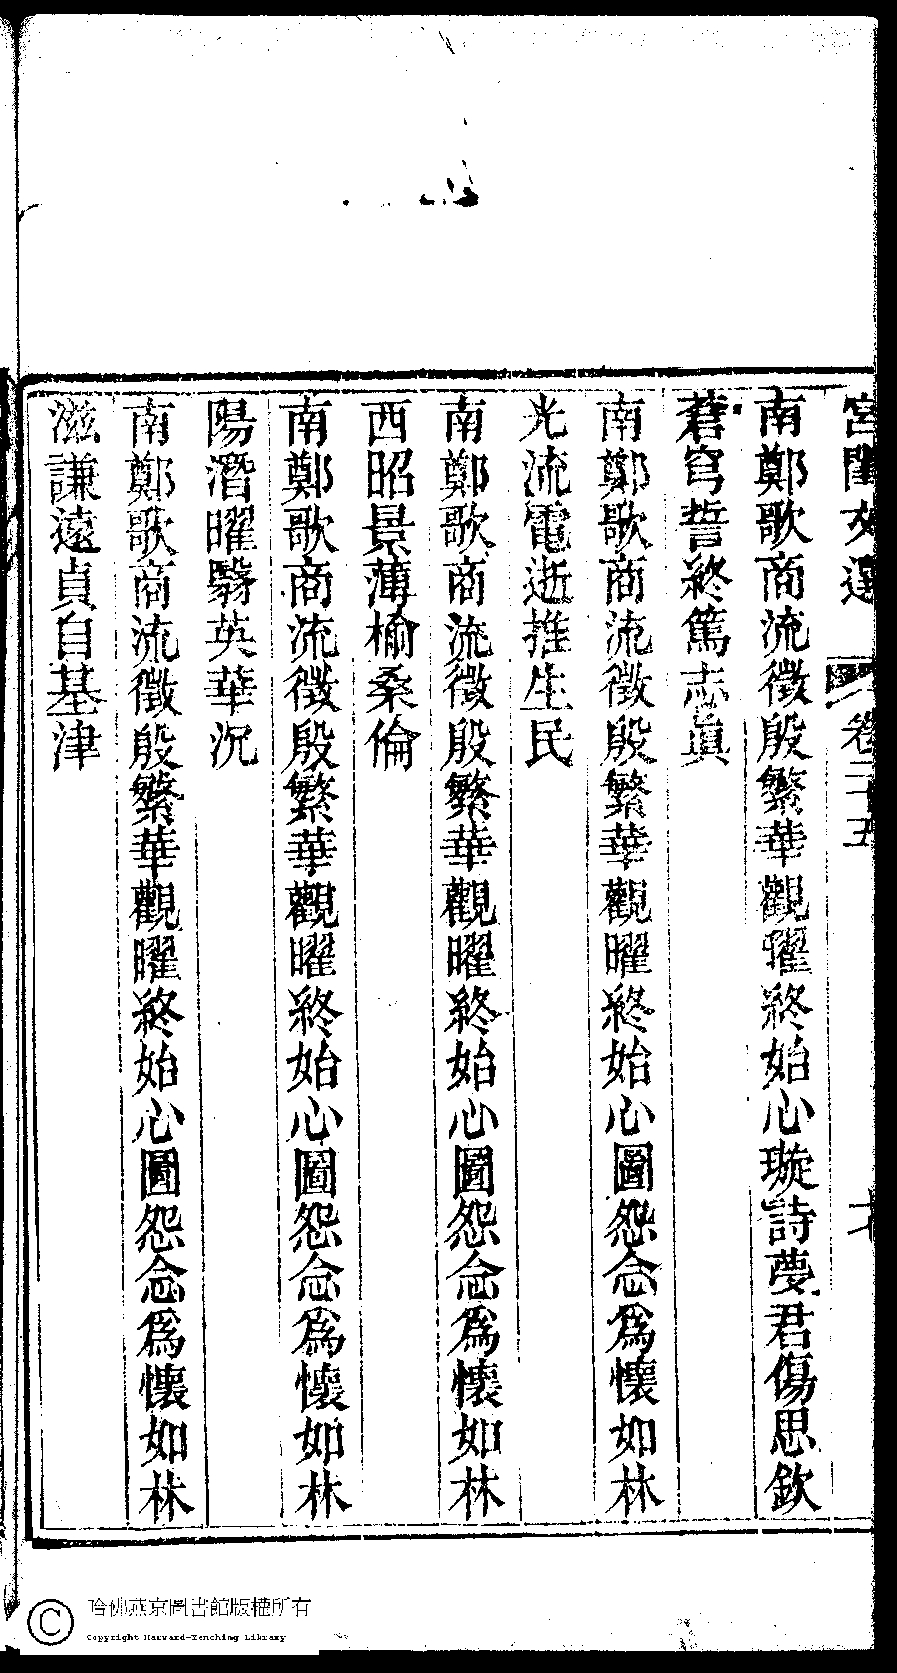 宮閨文選 卷二十五
南鄭歌商流徵殷繁華觀曜終始心璇詩夢君傷思欽
蒼穹誓終篤志眞
南鄭歌商流徵殷繁華觀曜終始心圖怨念爲懷如林
光流電逝推生民
南鄭歌商流徵殷繁華觀曜終始心圖怨念爲懷如林
西昭景薄榆桑倫
南鄭歌商流徵殷繁華觀曜終始心圖怨念爲懷如林
陽潛曜翳英華沉
南鄭歌商流徵殷繁華觀曜終始心圖怨念爲懷如林
滋謙遠貞自基津
哈佛燕京圖書館版權所有
Copyright Harvard-Yenching Library